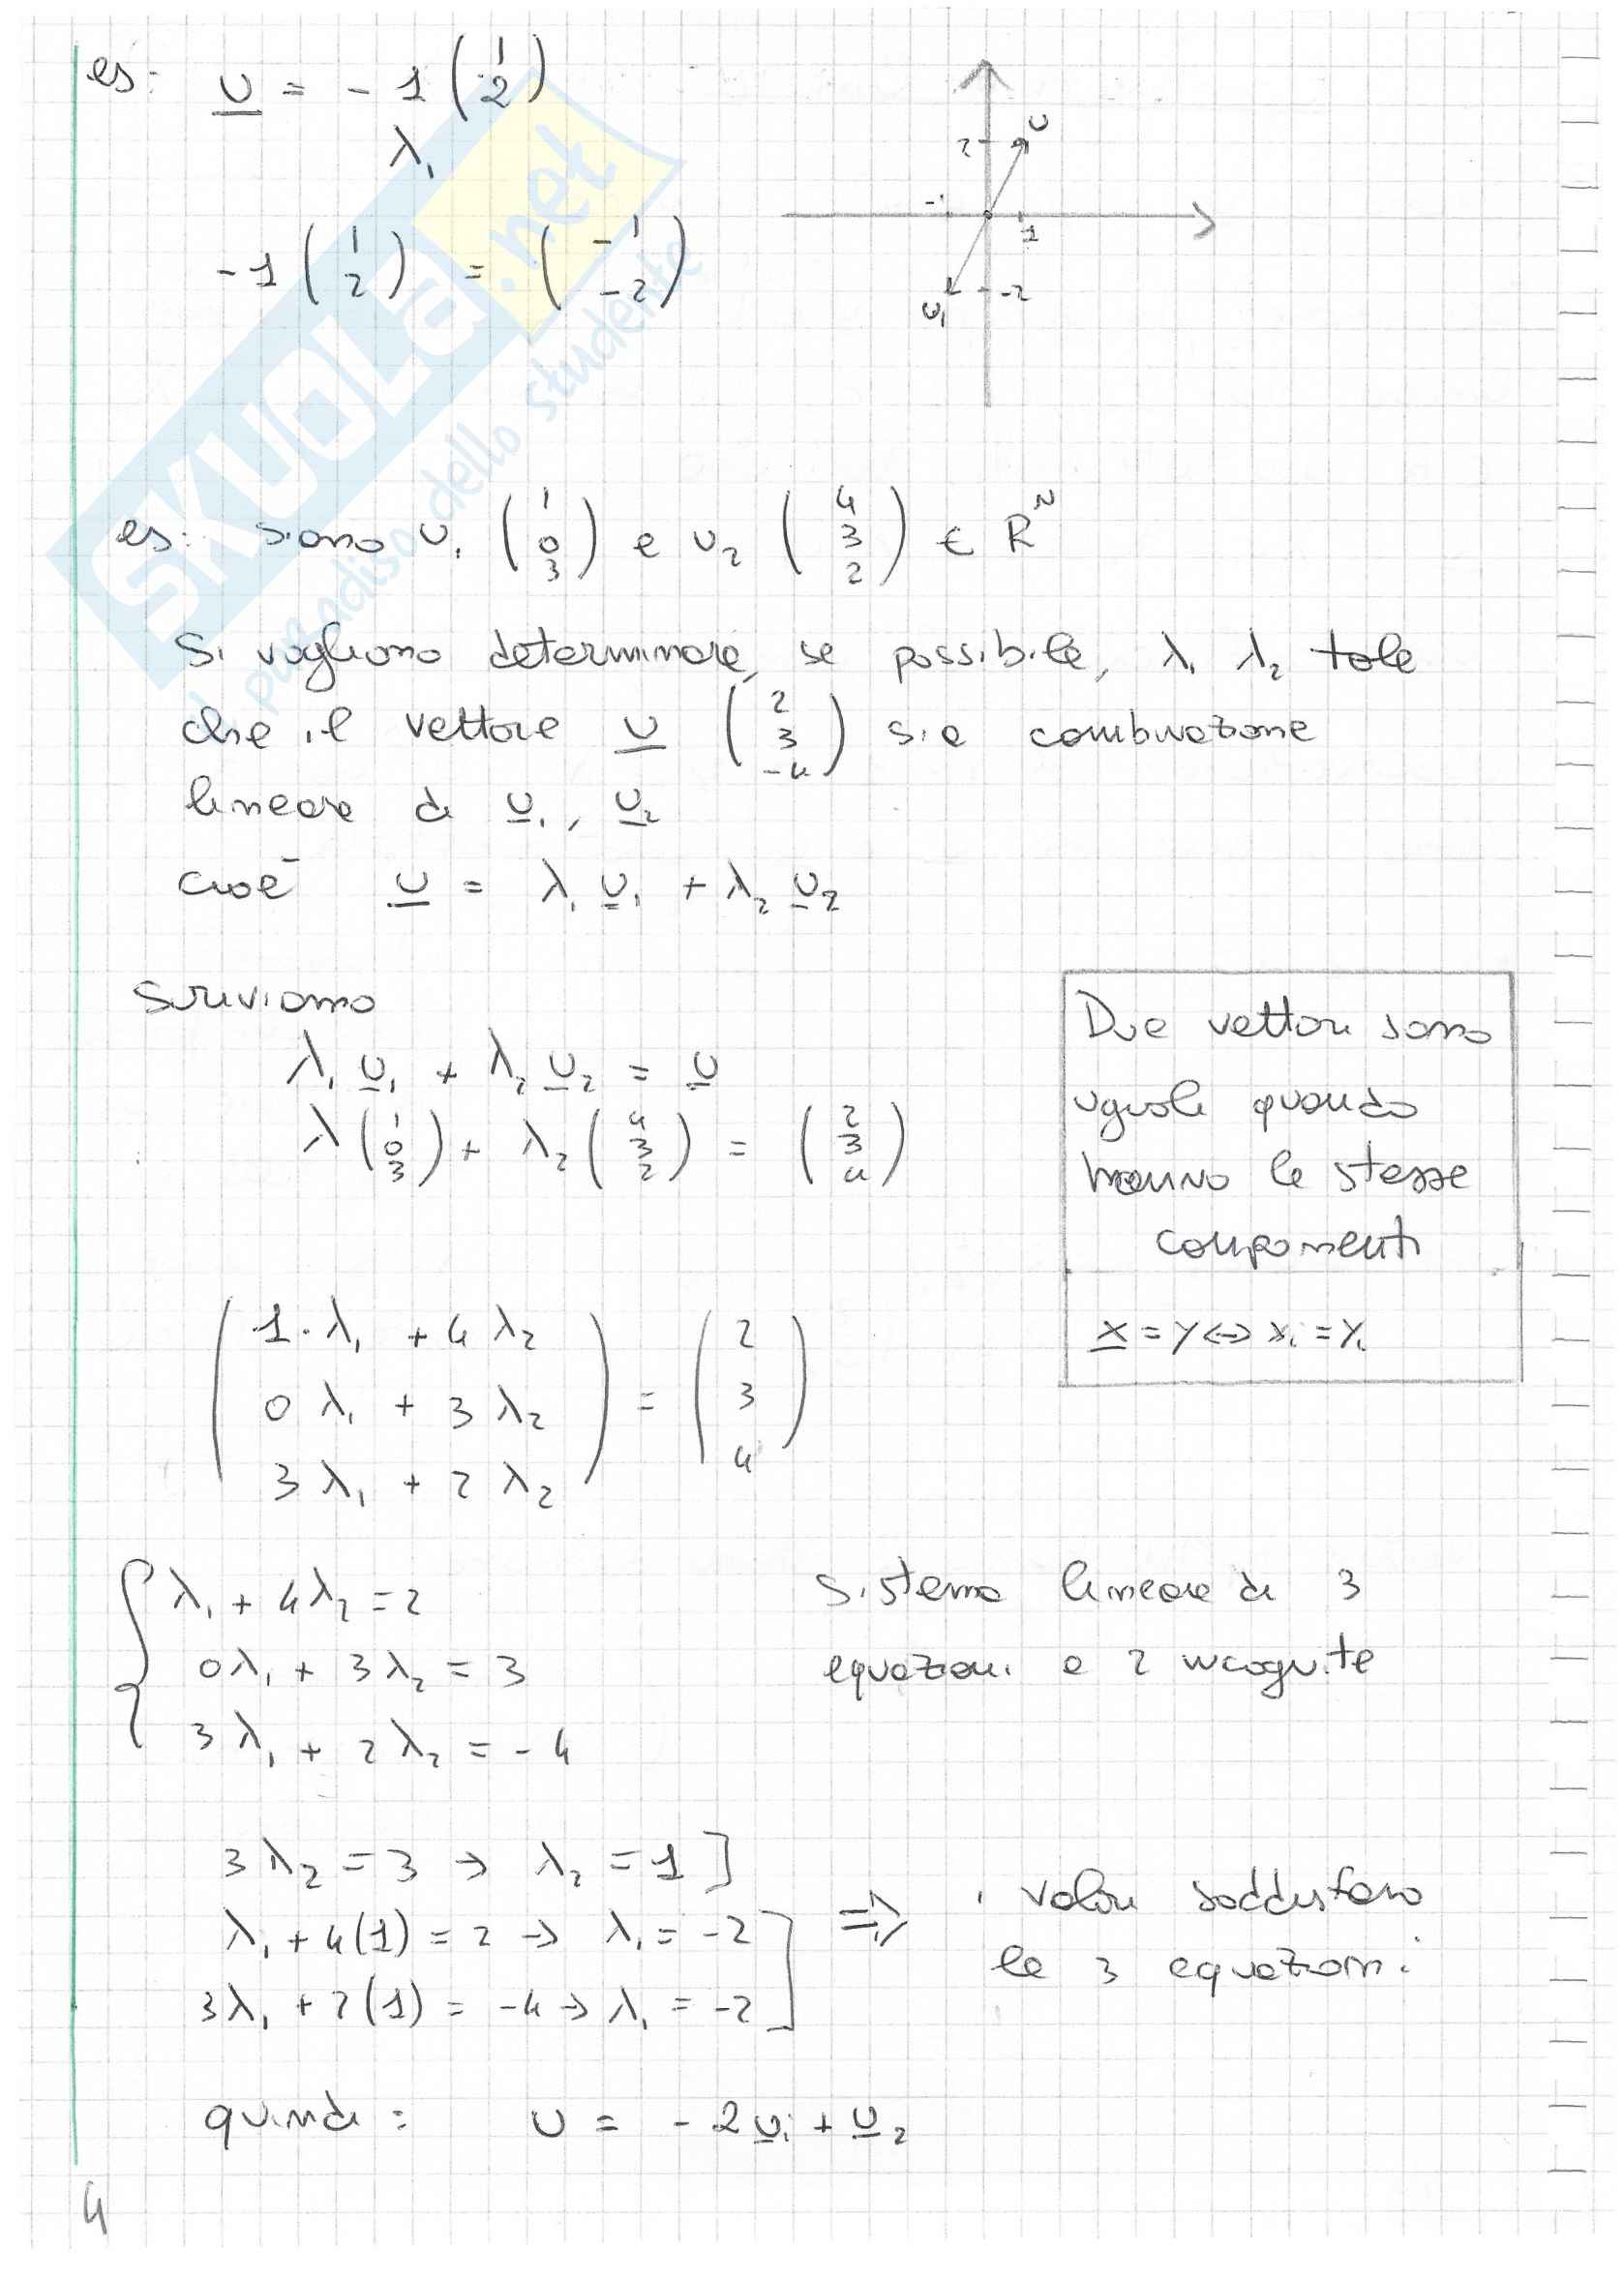 es: u = - 1 (1 2)
λ₁
-1 (1 2) = (-1 -2)
2 u
-1 1
u₁ -2
SKUOLA.net
il paradiso dello studente
es: siano u₁ (1 0 3) e u₂ (4 3 2) ∈ Rⁿ
Si vogliono determinare, se possibile, λ₁ λ₂ tale
che il vettore u (2 3 -4) sia combinazione
lineare di u₁, u₂
cioè u = λ₁ u₁ + λ₂ u₂
Scriviamo
λ₁ u₁ + λ₂ u₂ = u
λ (1 0 3) + λ₂ (4 3 2) = (2 3 4)
Due vettori sono
uguali quando
hanno le stesse
componenti
x = y ↔ xᵢ = yᵢ
1·λ₁ + 4 λ₂ = 2
0 λ₁ + 3 λ₂ = 3
3 λ₁ + 2 λ₂ = 4
λ₁ + 4λ₂ = 2
0λ₁ + 3λ₂ = 3
3λ₁ + 2λ₂ = - 4
Sistema lineare di 3
equazioni e 2 incognite
3λ₂ = 3 → λ₂ = 1 ]
λ₁ + 4(1) = 2 → λ₁ = -2
3λ₁ + 2(1) = -4 → λ₁ = -2 ]
⇒ i valori soddisfano
le 3 equazioni
quindi: u = - 2u₁ + u₂
4